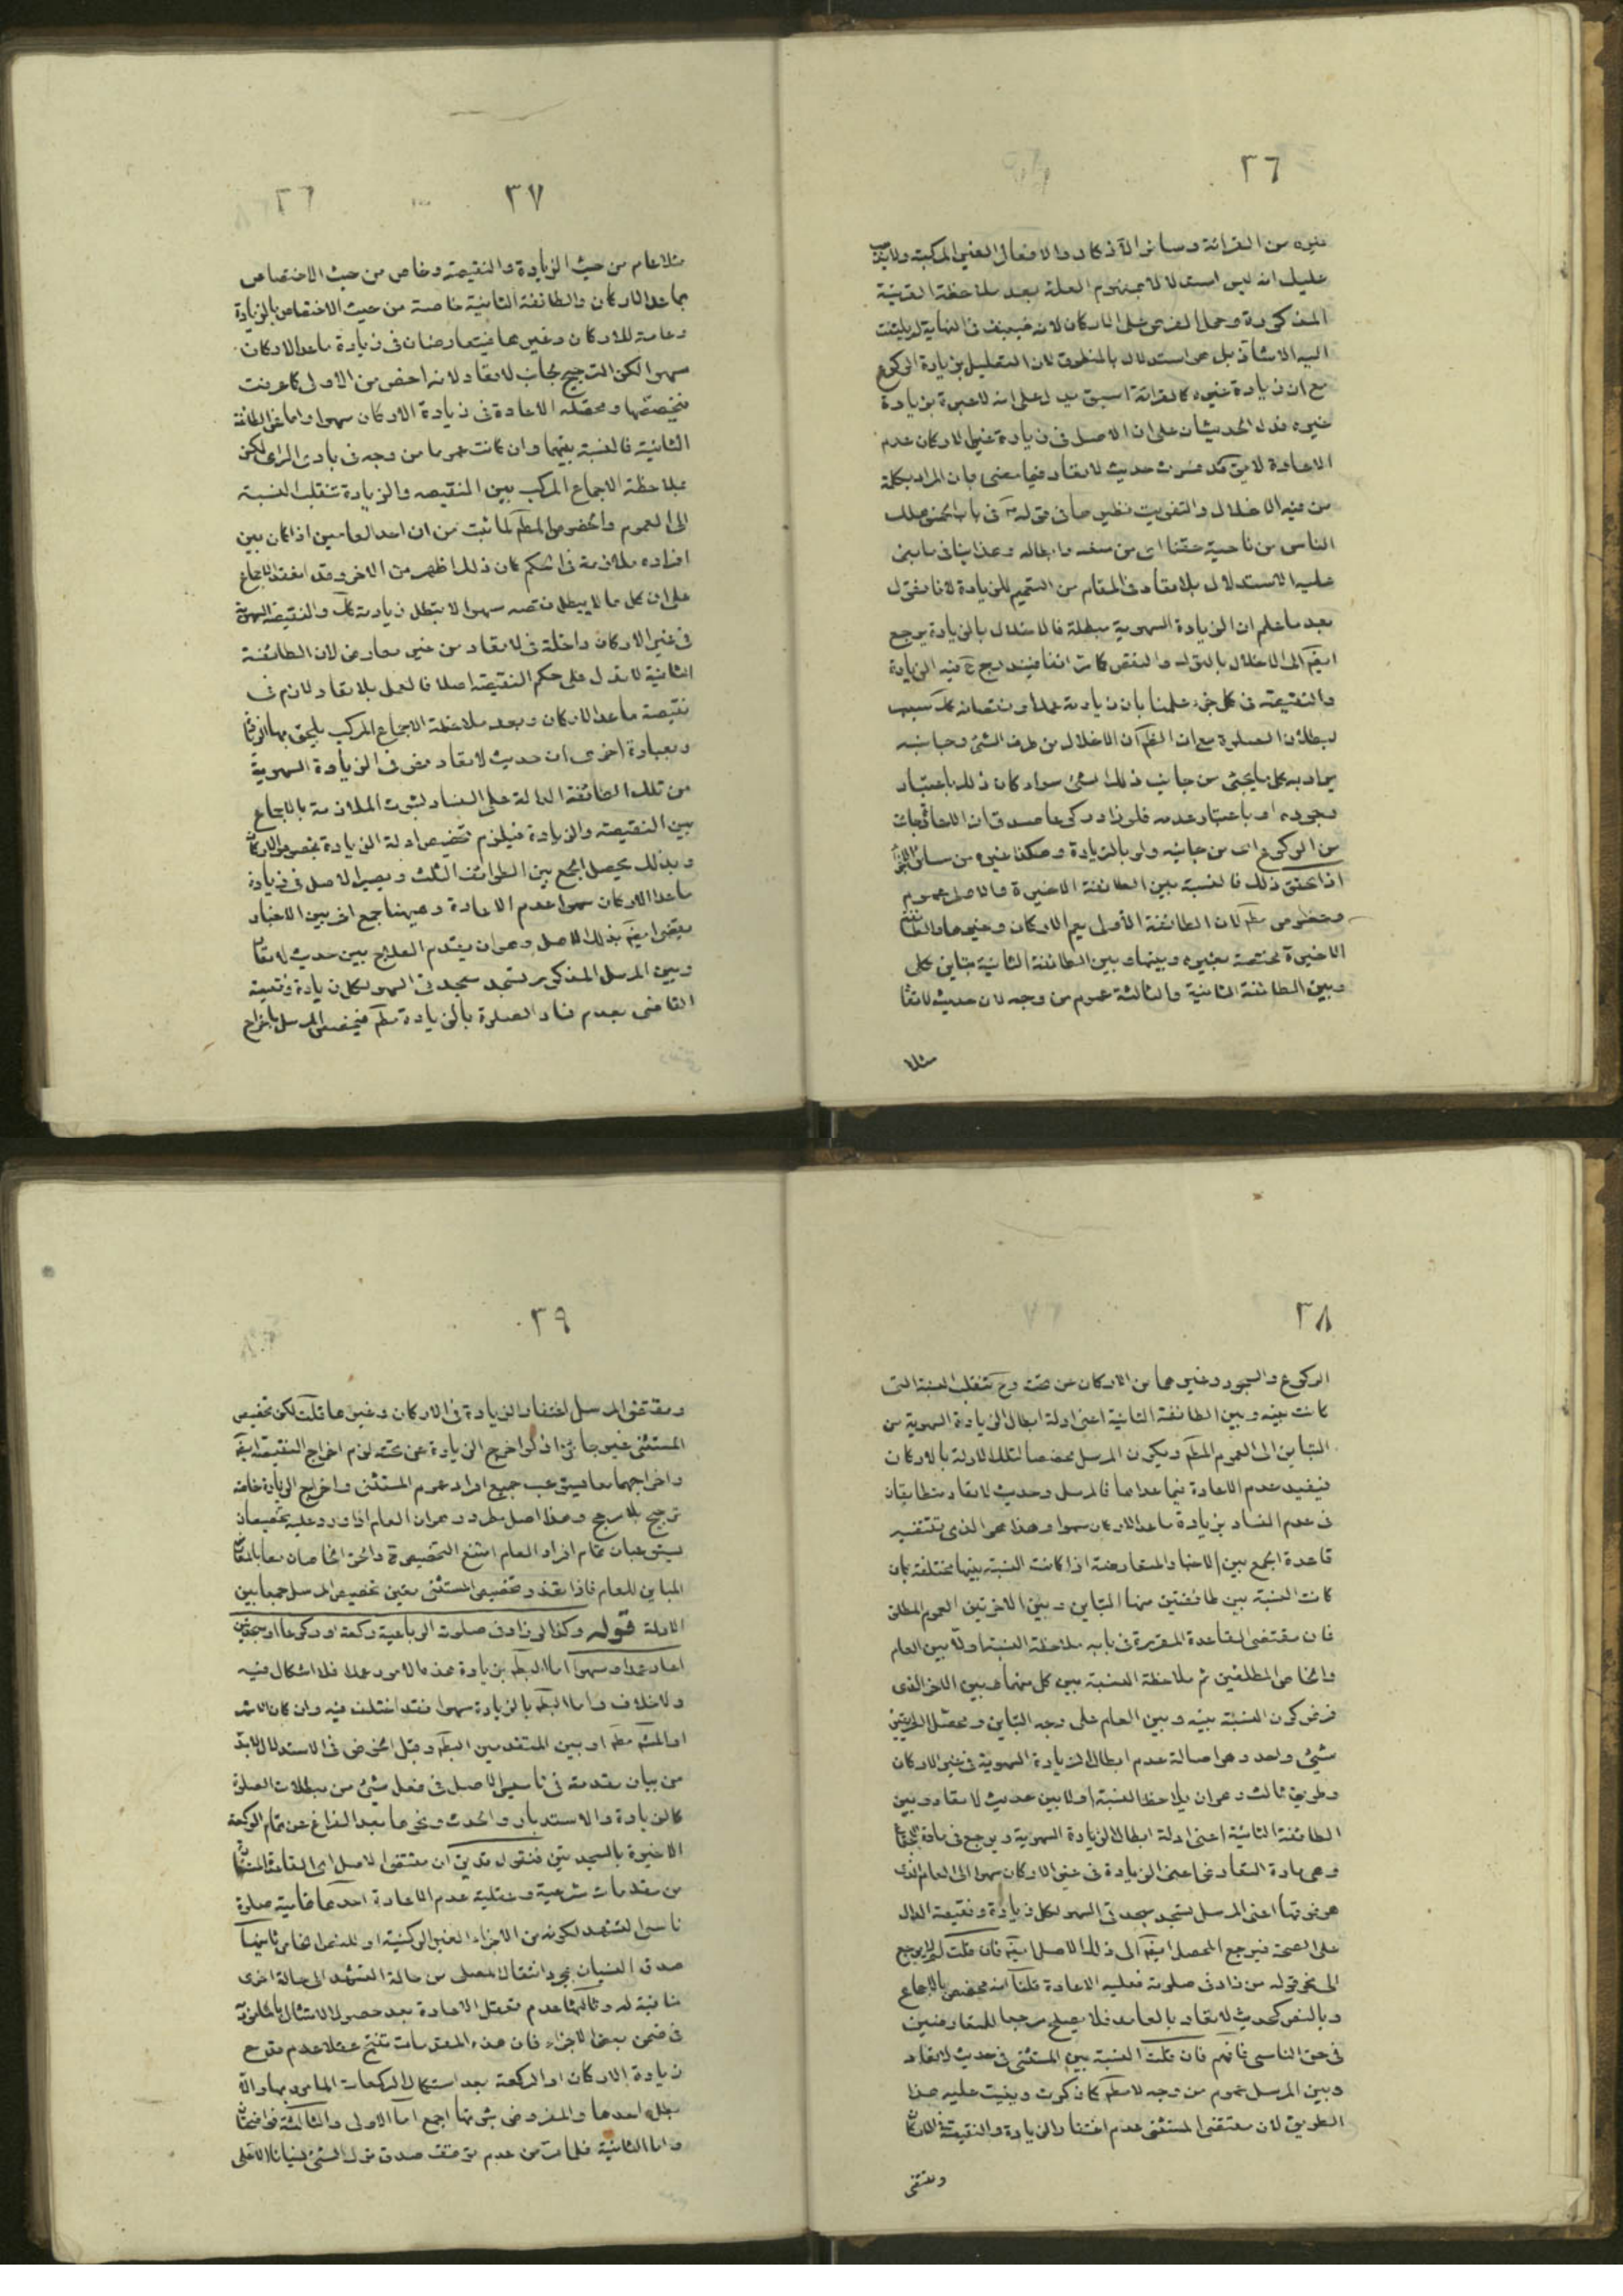 ٣٦
غيره من القرائة وسائر الاذكار والافعال الغير المركبة ولا
عليك انه ليس استدلالا بمفهوم العلة بعد ملاحظة القرينة
المذكورة وحمل الفرض على الاركان لانه ضعيف في النهاية لا يلتفت
اليه الاستاذ بل هو استدلال بالمنطوق لان التعليل بزيادة الركوع
مع ان زيادة غيره كالقرائة اسبق يدل على انه لا عبرة بزيادة
غيره فدل الحديثان على ان الاصل في زيادة غير الاركان عدم
الاعادة لا يق قد عرفت حديث لا تعاد فيما مضى بان المراد بكلمة
من فيه الاخلال والتفويت نظير ما في قوله في باب
الناس من ناحية حقنا اي من منعه وابطاله وهذا ينافي ما بنى
عليه الاستدلال بلا تعاد في المقام من التعميم للزيادة لانا نقول
بعد ما علم ان الزيادة السهوية مبطلة فالاخلال بالزيادة يرجع
ايضا الى الاخلال بالترك والنقص كما مر انفا فيندرج ح فيه الزيادة
والنقيصة في كل جزء علمنا بان زيادته عمدا ونقصانه كك سبب
لبطلان الصلوة مع ان الظم ان الاخلال من طرف الشئ وجانبه
يراد به كل ما يجئ من جانب ذلك الشئ سواء كان ذلك باعتبار
وجوده او باعتبار عدمه فلو زاد ركوعا صدق ان الاعادة جائت
من الركوع اي من جانبه ولو بالزيادة وهكذا غيره من سائر
اذا تحقق ذلك فالنسبة بين الطائفة الاخيرة والاصل عموم
وخصوص مطم لان الطائفة الاولى يعم الاركان وغيرها والطائفة
الاخيرة مختصة بغيره وبينها وبين الطائفة الثانية تباين كلي
وبين الطائفة الثانية والثالثة عموم من وجه لان حديث لا تعاد
مثلا
٣٧
مثلا عام من حيث الزيادة والنقيصة وخاص من حيث الاختصاص
بما عدا الاركان والطائفة الثانية خاصة من حيث الاختصاص بالزيادة
وعامة للاركان وغيرها فيتعارضان في زيادة ما عدا الاركان
سهوا لكن الترجيح بجانب لا تعاد لانه اخص من الاولى كما عرفت
فيخصصها ومحصله الاعادة في زيادة الاركان سهوا واما غير الطائفة
الثانية فالنسبة بينهما وان كانت عموما من وجه في بادى الراى لكن
بملاحظة الاجماع المركب بين النقيصه والزيادة تنقلب النسبة
الى العموم والخصوص المطم لما ثبت من ان احد العامين اذا كان بين
افراده ملازمة في الحكم كان ذلك اظهر من الاخر وقد انعقد الاجماع
على ان كل ما لا يبطل نقصه سهوا لا يبطل زيادته كك والنقيصة السهوية
في غير الاركان داخلة في لا تعاد من غير معارض لان الطائفة
الثانية لا تدل على حكم النقيصة اصلا فالعمل بلا تعاد لازم في
نقيصة ما عدا الاركان وبعد ملاحظة الاجماع المركب يلحق بها الزيادة
وبعبارة اخرى ان حديث لا تعاد مفر في الزيادة السهوية
من تلك الطائفة الدالة على الفساد لثبوت الملازمة بالاجماع
بين النقيصة والزيادة فيلزم تخصيص ادلة الزيادة بخصوص الاركان
وبذلك يحصل الجمع بين الطوائف الثلث ويصير الاصل في زيادة
ما عدا الاركان سهوا عدم الاعادة وههنا جمع اخر بين الاخبار
يقتضى ايضا بذلك الاصل وهو ان يقدم العلاج بين حديث لا تعاد
وبين المرسل المذكور تسجد سجدتى السهو لكل زيادة ونقيصة
القاضى بعدم فساد الصلوة بالزيادة مطم فيخصص المرسل باخراج
٣٨
الركوع والسجود وغيرهما من الاركان عن تحته وح تنقلب النسبة التى
كانت بينه وبين الطائفة الثانية اعنى ادلة ابطال الزيادة السهوية من
التباين الى العموم المطم ويكون المرسل مخصصا لتلك الادلة بالاركان
فيفيد عدم الاعادة فيما عداها فالمرسل وحديث لا تعاد متطابقان
في عدم الفساد بزيادة ما عدا الاركان سهوا وهذا هو الذى تقتضيه
قاعدة الجمع بين الاخبار المتعارضة اذا كانت النسبة بينها مختلفة بان
كانت النسبة بين طائفتين منها التباين وبين الاخرتين العموم المطلق
فان مقتضى القاعدة المقررة في بابه ملاحظة النسبة اولا بين العام
والخاص المطلقين ثم ملاحظة النسبة بين كل منهما وبين الاخر الذى
فرض كون النسبة بينه وبين العام على وجه التباين ومحصل الطريقين
شئ واحد وهو اصالة عدم ابطال الزيادة السهوية في غير الاركان
وطريق ثالث وهو ان يلاحظ النسبة اولا بين حديث لا تعاد وبين
الطائفة الثانية اعنى ادلة ابطال الزيادة السهوية ويرجع في مادة
وهى مادة التعارض اعنى الزيادة في غير الاركان سهوا الى العام الذى
هو فوقها اعنى المرسل تسجد سجدتى السهو لكل زيادة ونقيصة الدال
على الصحة فيرجع المحصل ايضا الى ذلك الاصل ايضا فان قلت لم لا يرجع
الى نحو قوله من زاد في صلوته فعليه الاعادة قلنا انه مخصص بالاجماع
وبالنص كحديث لا تعاد بالعامد فلا يصلح مرجعا للمتعارضين
في حق الناسى فافهم فان قلت النسبة بين المستثنى في حديث لا تعاد
وبين المرسل عموم من وجه لا مطم كما ذكرت وبنيت عليه هذا
الطريق لان مقتضى المستثنى عدم اغتفار الزيادة والنقيصة في الاركان
ومقتضى
٣٩
ومقتضى المرسل اغتفار الزيادة في الاركان وغيرها قلت لكن تخصيص
المستثنى غير جائز اذ لو اخرج الزيادة عن تحته لزم اخراج النقيصة ايضا
واخراجهما معا يستوعب جميع افراد عموم المستثنى واخراج الزيادة خاصة
ترجيح بلا مرجح وهذا اصل مطرد وهو ان العام اذا ورد عليه تخصيصان
يستوعبان تمام افراد العام امتنع التخصيص والحق الخاصان معا
المباين للعام فاذا تعذر تخصيص المستثنى تعين تخصيص المرسل جمعا بين
الادلة قوله وكذا لو زاد في صلوة الرباعية ركعة او ركوعا او سجدتين
اعاد عمدا وسهوا اما البطم بزيادة هذه الامور عمدا فلا اشكال فيه
ولا خلاف واما البطم بالزيادة سهوا فقد اختلف فيه وان كان الاشهر
او المشهور مطم او بين المتقدمين البطم وقبل الخوض في الاستدلال لابد
من بيان مقدمة في تاسيس الاصل في فعل شئ من مبطلات الصلوة
كالزيادة والاستدبار والحدث ونحوها بعد الفراغ عن تمام الركعة
الاخيرة بالسجدتين فنقول قد يق ان مقتضى الاصل اى القاعدة المستفادة
من مقدمات شرعية وعقلية عدم الاعادة احدها تمامية صلوة
ناسى التشهد لكونه من الاجزاء الغير الركنية او للنص الخاص ثانيها
صدق النسيان بمجرد انتقال المصلى من حالة التشهد الى حالة اخرى
منافية له وثالثها عدم تعقل الاعادة بعد حصول الامتثال بالمامور به
في ضمن بعض الاجزاء فان هذه المقدمات تنتج عقلا عدم قدح
زيادة الاركان او الركعة بعد استكمال الركعات المامور بها والا
بطل احدها والمفروض ثبوتها اجمع اما الاولى والثالثة فواضحتان
واما الثانية فلما مر من عدم توقف صدق ترك الشئ نسيانا الا على